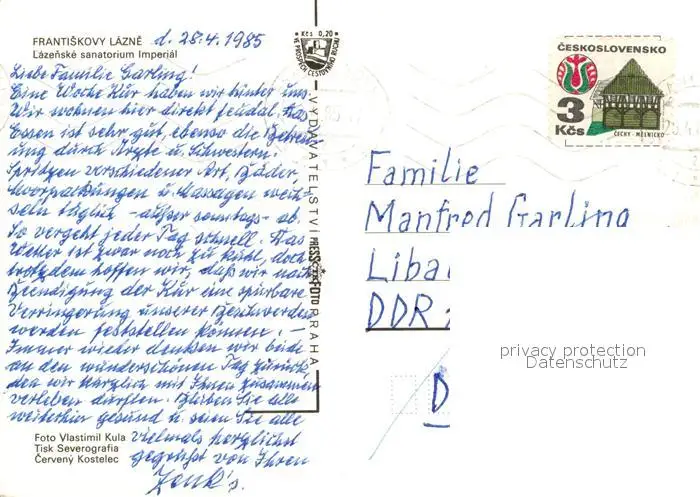 FRANTIŠKOVY LÁZNĚ d. 28.4.1985
Lázeňské sanatorium Imperiál
Liebe Familie Garling!
Eine Woche Kur haben wir hinter uns.
Wir wohnen hier direkt feudal. Das
Essen ist sehr gut, ebenso die Betreu
ung durch Ärzte u. Schwestern.
Spritzen verschiedener Art, Bäder,
Moorpackungen u. Massagen wech-
seln täglich - außer sonntags - ab.
So vergeht jeder Tag schnell. Das
Wetter ist zwar noch zu kühl, doch
trotzdem hoffen wir, daß wir nach
Beendigung der Kur eine spürbare
Verringerung unserer Beschwerden
werden feststellen können. –
Immer wieder denken wir beide
an den wunderschönen Tag zurück
den wir kürzlich mit Ihnen zusammen
verleben durften. Bleiben Sie alle
weiterhin gesund u. seien Sie alle
vielmals herzlichst
gegrüßt von Ihren
Foto Vlastimil Kula
Tisk Severografia
Červený Kostelec
Kčs 0,20
VE PROSPĚCH CESTOVNÍHO RUCHU
VYDAVATELSTVÍ PRESSFOTO PRAHA
ČESKOSLOVENSKO
3 Kčs
ČECHY - MĚLNICKO
Familie
Manfred Garling
Liba
DDR
D
privacy protection
Datenschutz